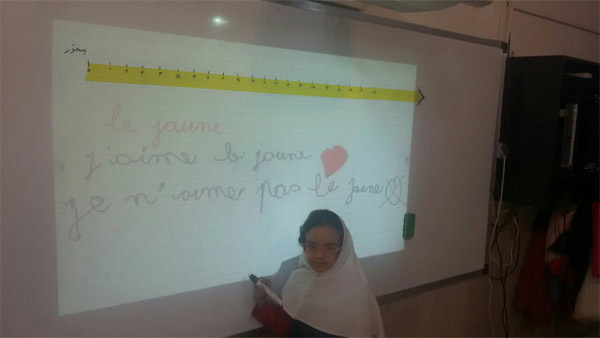 le jaune
j'aime le jaune
je n'aime pas le jaune